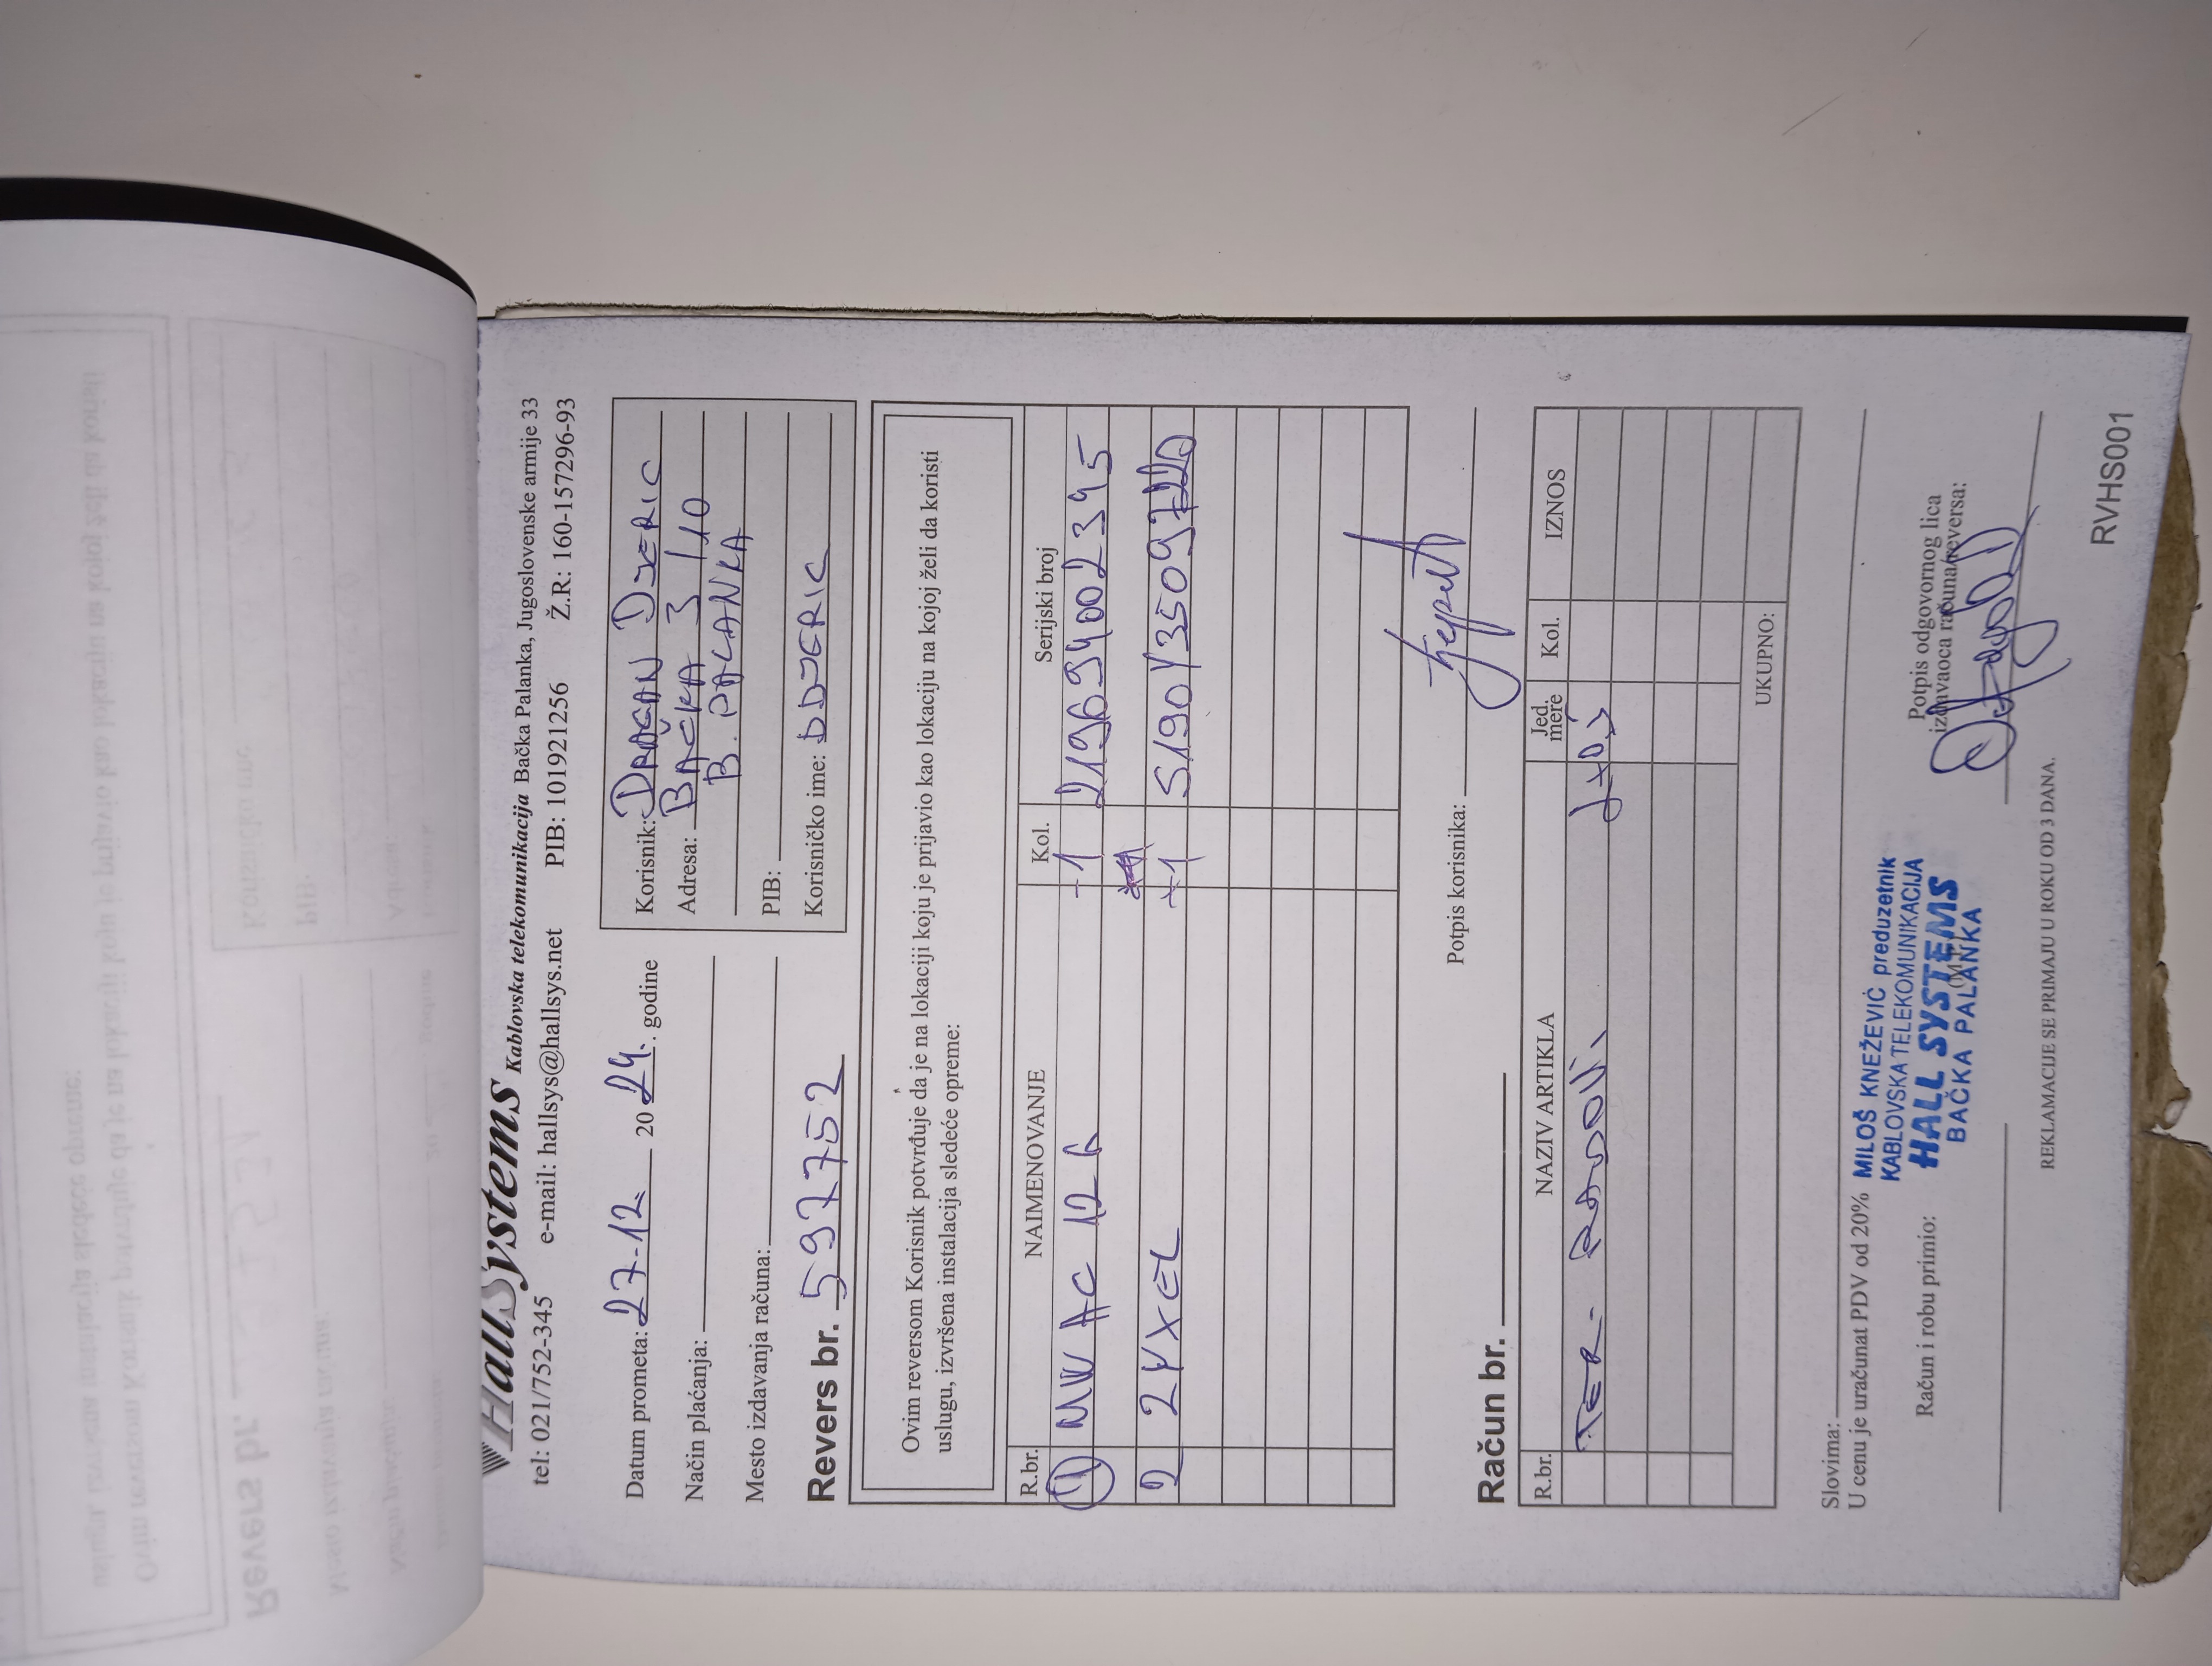 HallSystems Kablovska telekomunikacija Bačka Palanka, Jugoslovenske armije 33
tel: 021/752-345 e-mail: hallsys@hallsys.net PIB: 101921256 Ž.R: 160-157296-93
Datum prometa: 27-12 2024. godine
Način plaćanja:
Mesto izdavanja računa:
Revers br. 597752
Korisnik: DRAGAN DJERIC
Adresa: BAČKA 3/10
B. PALANKA
PIB:
Korisničko ime: DDJERIC
Ovim reversom Korisnik potvrđuje da je na lokaciji koju je prijavio kao lokaciju na kojoj želi da koristi
uslugu, izvršena instalacija sledeće opreme:
R.br. NAIMENOVANJE Kol. Serijski broj
1 AC 12 1
2 ZYXEL 1
Potpis korisnika:
Račun br.
R.br. NAZIV ARTIKLA Jed. mere Kol. IZNOS
UKUPNO:
Slovima:
U cenu je uračunat PDV od 20%
MILOŠ KNEŽEVIĆ preduzetnik
KABLOVSKA TELEKOMUNIKACIJA
HALL SYSTEMS
BAČKA PALANKA
Račun i robu primio:
Potpis odgovornog lica
izdavaoca računa/reversa:
REKLAMACIJE SE PRIMAJU U ROKU OD 3 DANA.
RVHS001